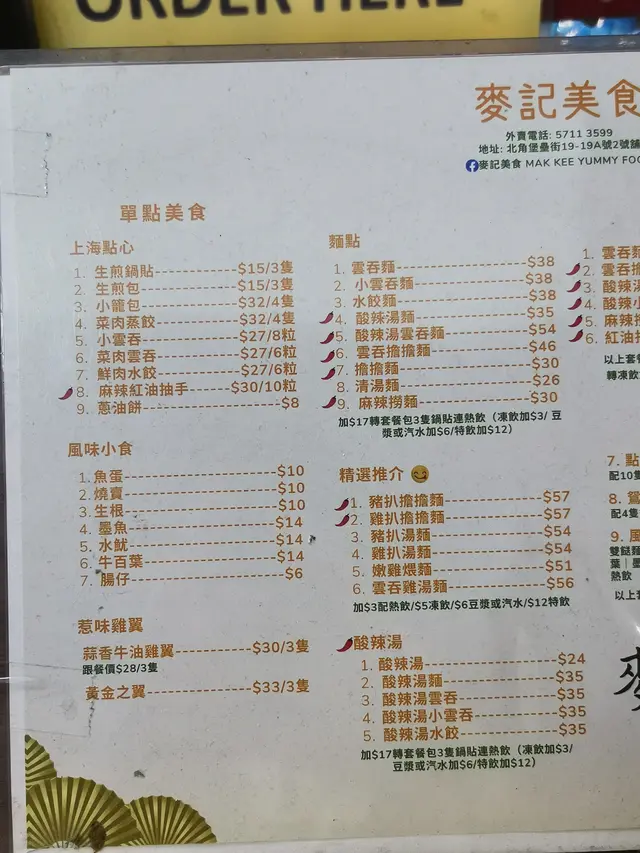 ORDER HERE
麥記美食
外賣電話: 5711 3599
地址: 北角堡壘街19-19A號2號舖
麥記美食 MAK KEE YUMMY FOO
單點美食
上海點心
1. 生煎鍋貼-----------$15/3隻
2. 生煎包-------------$15/3隻
3. 小籠包-------------$32/4隻
4. 菜肉蒸餃-----------$32/4隻
5. 小雲吞-------------$27/8粒
6. 菜肉雲吞-----------$27/6粒
7. 鮮肉水餃-----------$27/6粒
8. 麻辣紅油抽手------$30/10粒
9. 蔥油餅-----------------$8
風味小食
1. 魚蛋-------------------$10
2. 燒賣-------------------$10
3. 生根-------------------$10
4. 墨魚-------------------$14
5. 水魷-------------------$14
6. 牛百葉-----------------$14
7. 腸仔--------------------$6
惹味雞翼
蒜香牛油雞翼-----------$30/3隻
跟餐價$28/3隻
黃金之翼---------------$33/3隻
麵點
1. 雲吞麵-----------------$38
2. 小雲吞麵---------------$38
3. 水餃麵-----------------$38
4. 酸辣湯麵---------------$35
5. 酸辣湯雲吞麵-----------$54
6. 雲吞擔擔麵-------------$46
7. 擔擔麵-----------------$30
8. 清湯麵-----------------$26
9. 麻辣撈麵---------------$30
加$17轉套餐包3隻鍋貼連熱飲（凍飲加$3/ 豆
漿或汽水加$6/特飲加$12）
精選推介
1. 豬扒擔擔麵-------------$57
2. 雞扒擔擔麵-------------$57
3. 豬扒湯麵---------------$54
4. 雞扒湯麵---------------$54
5. 嫩雞煨麵---------------$51
6. 雲吞雞湯麵-------------$56
加$3配熱飲/$5凍飲/$6豆漿或汽水/$12特飲
酸辣湯
1. 酸辣湯-----------------$24
2. 酸辣湯麵---------------$35
3. 酸辣湯雲吞-------------$35
4. 酸辣湯小雲吞-----------$35
5. 酸辣湯水餃-------------$35
加$17轉套餐包3隻鍋貼連熱飲（凍飲加$3/
豆漿或汽水加$6/特飲加$12）
1. 雲吞麵
2. 雲吞擔
3. 酸辣湯
4. 酸辣小
5. 麻辣
6. 紅油
以上套餐
轉凍飲
7. 點
配10
8.
配4隻
9. 風
雙餸麵
葉｜墨
熱飲
以上
麥